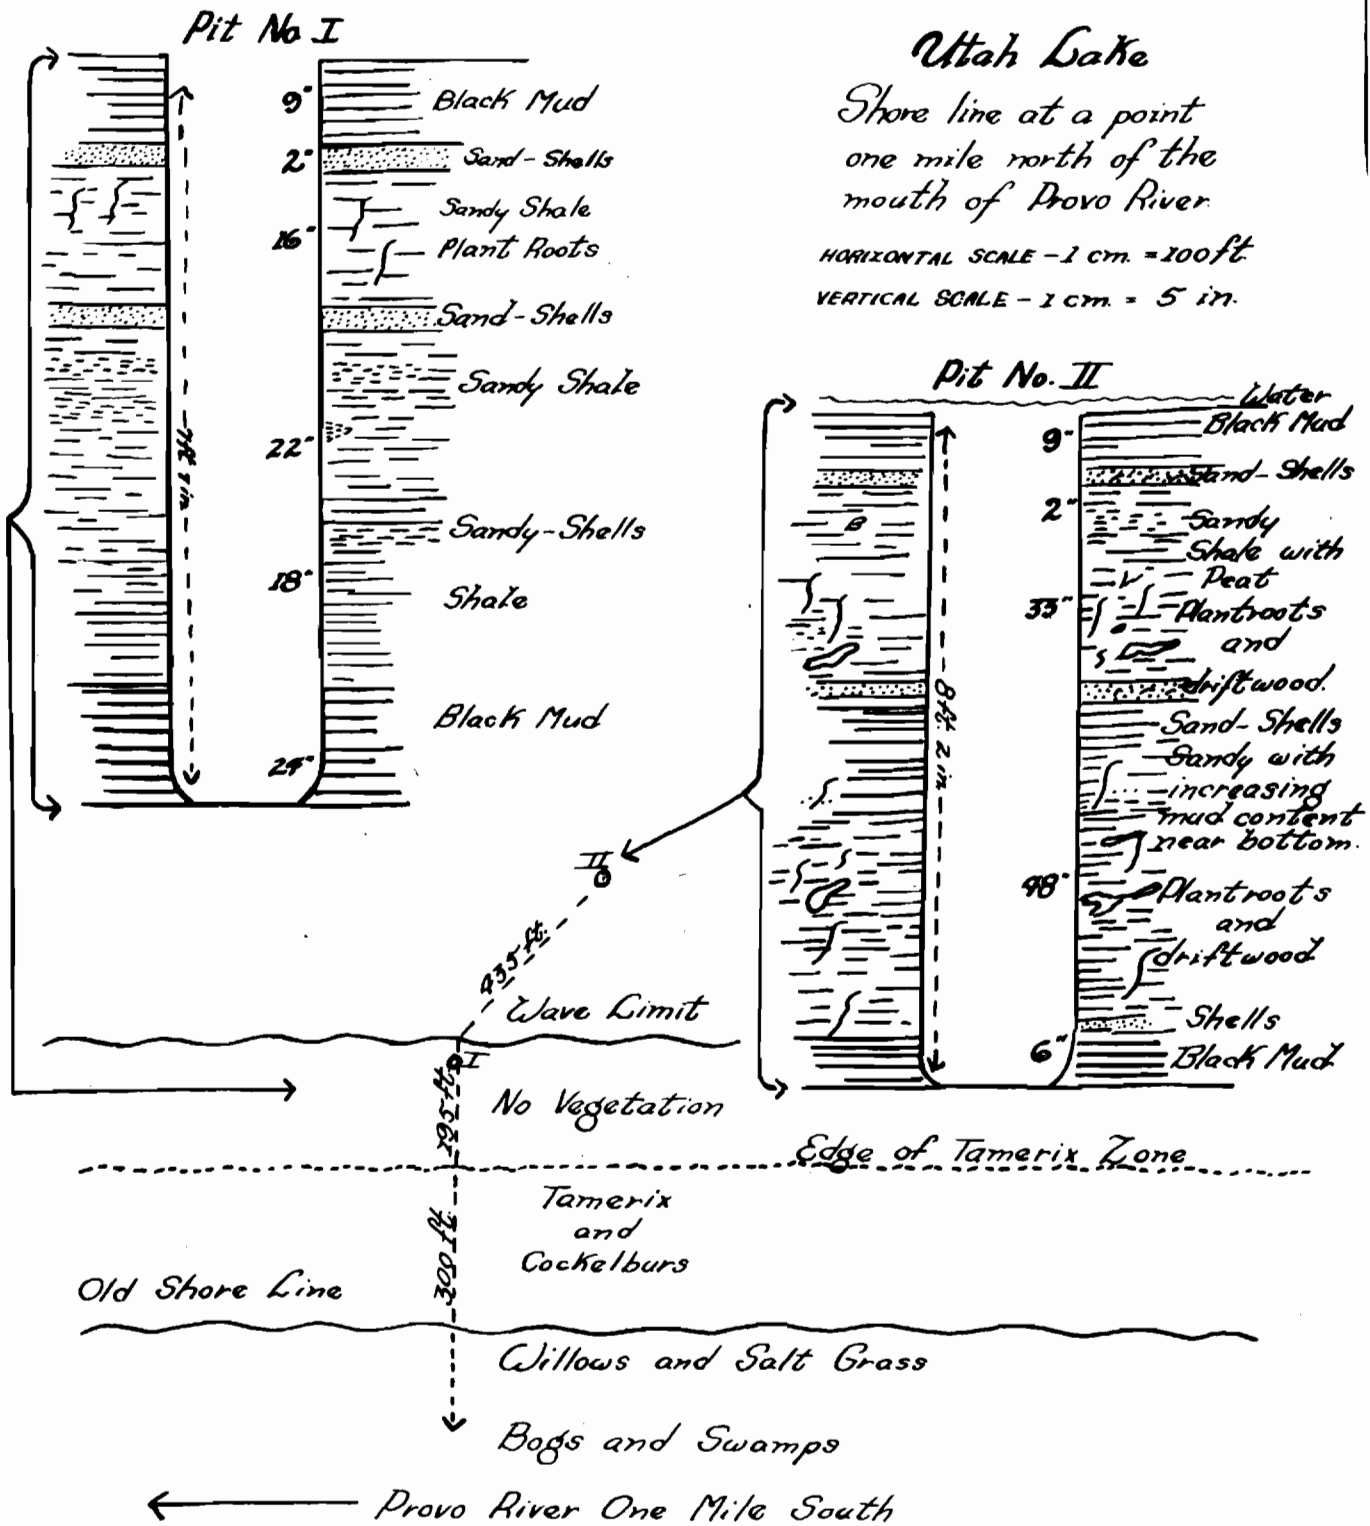 Pit No I
9"
Black Mud
2"
Sand-Shells
Sandy Shale
16"
Plant Roots
Sand-Shells
Sandy Shale
22"
Sandy-Shells
18"
Shale
Black Mud
24"
7ft 7in
Utah Lake
Shore line at a point
one mile north of the
mouth of Provo River
HORIZONTAL SCALE - 1 cm. = 100 ft.
VERTICAL SCALE - 1 cm. = 5 in.
Pit No. II
Water
Black Mud
9"
Sand-Shells
2"
Sandy
Shale with
Peat
33"
Plantroots
and
driftwood.
Sand-Shells
Sandy with
increasing
mud content
near bottom.
48"
Plantroots
and
driftwood
Shells
6"
Black Mud
8 ft. 2 in
II
435 ft.
Wave Limit
I
195 ft.
No Vegetation
Edge of Tamerix Zone
Tamerix
and
Cockelburs
300 ft.
Old Shore Line
Willows and Salt Grass
Bogs and Swamps
Provo River One Mile South